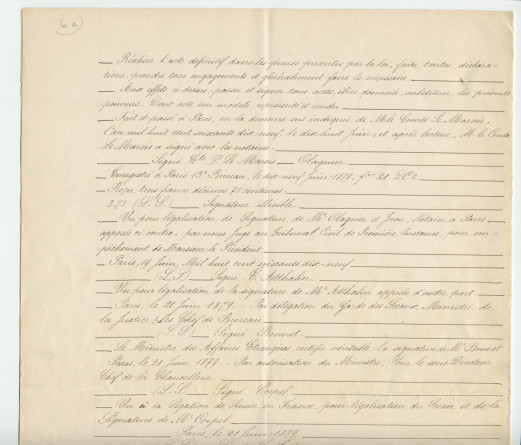 6a
Réaliser l'acte définitif dans les formes prescrites par la loi, faire toutes déclara-
tions, prendre tous engagements et généralement faire le nécessaire
Aux effets ci-dessus, passer et signer tous actes, élire domicile, substituer les présents
pouvoirs. Dont acte sur modèle représenté et rendu
Fait et passé à Paris, en la demeure sus indiquée de Mr le Comte Le Marois,
L'an mil huit cent soixante dix-neuf, le dix-huit Juin; et après lecture, M. le Comte
Le Marois a signé avec les notaires.
Signé: Cte P. Le Marois — Olagnier
Enregistré à Paris 13e Bureau, le dix-neuf Juin 1879, fo 21
Reçu trois francs décimes 75 centimes
3,75 (L.S) Signature illisible.
Vu pour légalisation de Signature de Me Olagnier et Jean, Notaire à Paris
apposée ci-contre, par nous Juge au Tribunal Civil de Première Instance, pour em-
pêchement de Monsieur le Président
Paris, 19 Juin, Mil huit cent soixante dix-neuf
(L.S) Signé: Atthalin
Vu pour légalisation de la signature de Mr Atthalin apposée d'autre part
Paris, le 21 Juin 1879. Par délégation du Garde des Sceaux, Ministre de
la Justice, Le Chef de Bureau
(L.S) Signé Bonnet
Le Ministre des Affaires Etrangères, certifie véritable la signature de Mr Bonnet
Paris, le 21 Juin 1879. Par autorisation du Ministre, Pour le sous Directeur
Chef de la Chancellerie
(L.S) Signé Corpel
Vu à la légation de Suisse en France, pour légalisation du Sceau et de la
Signature de Mr Corpel
Paris, le 21 Juin 1879.